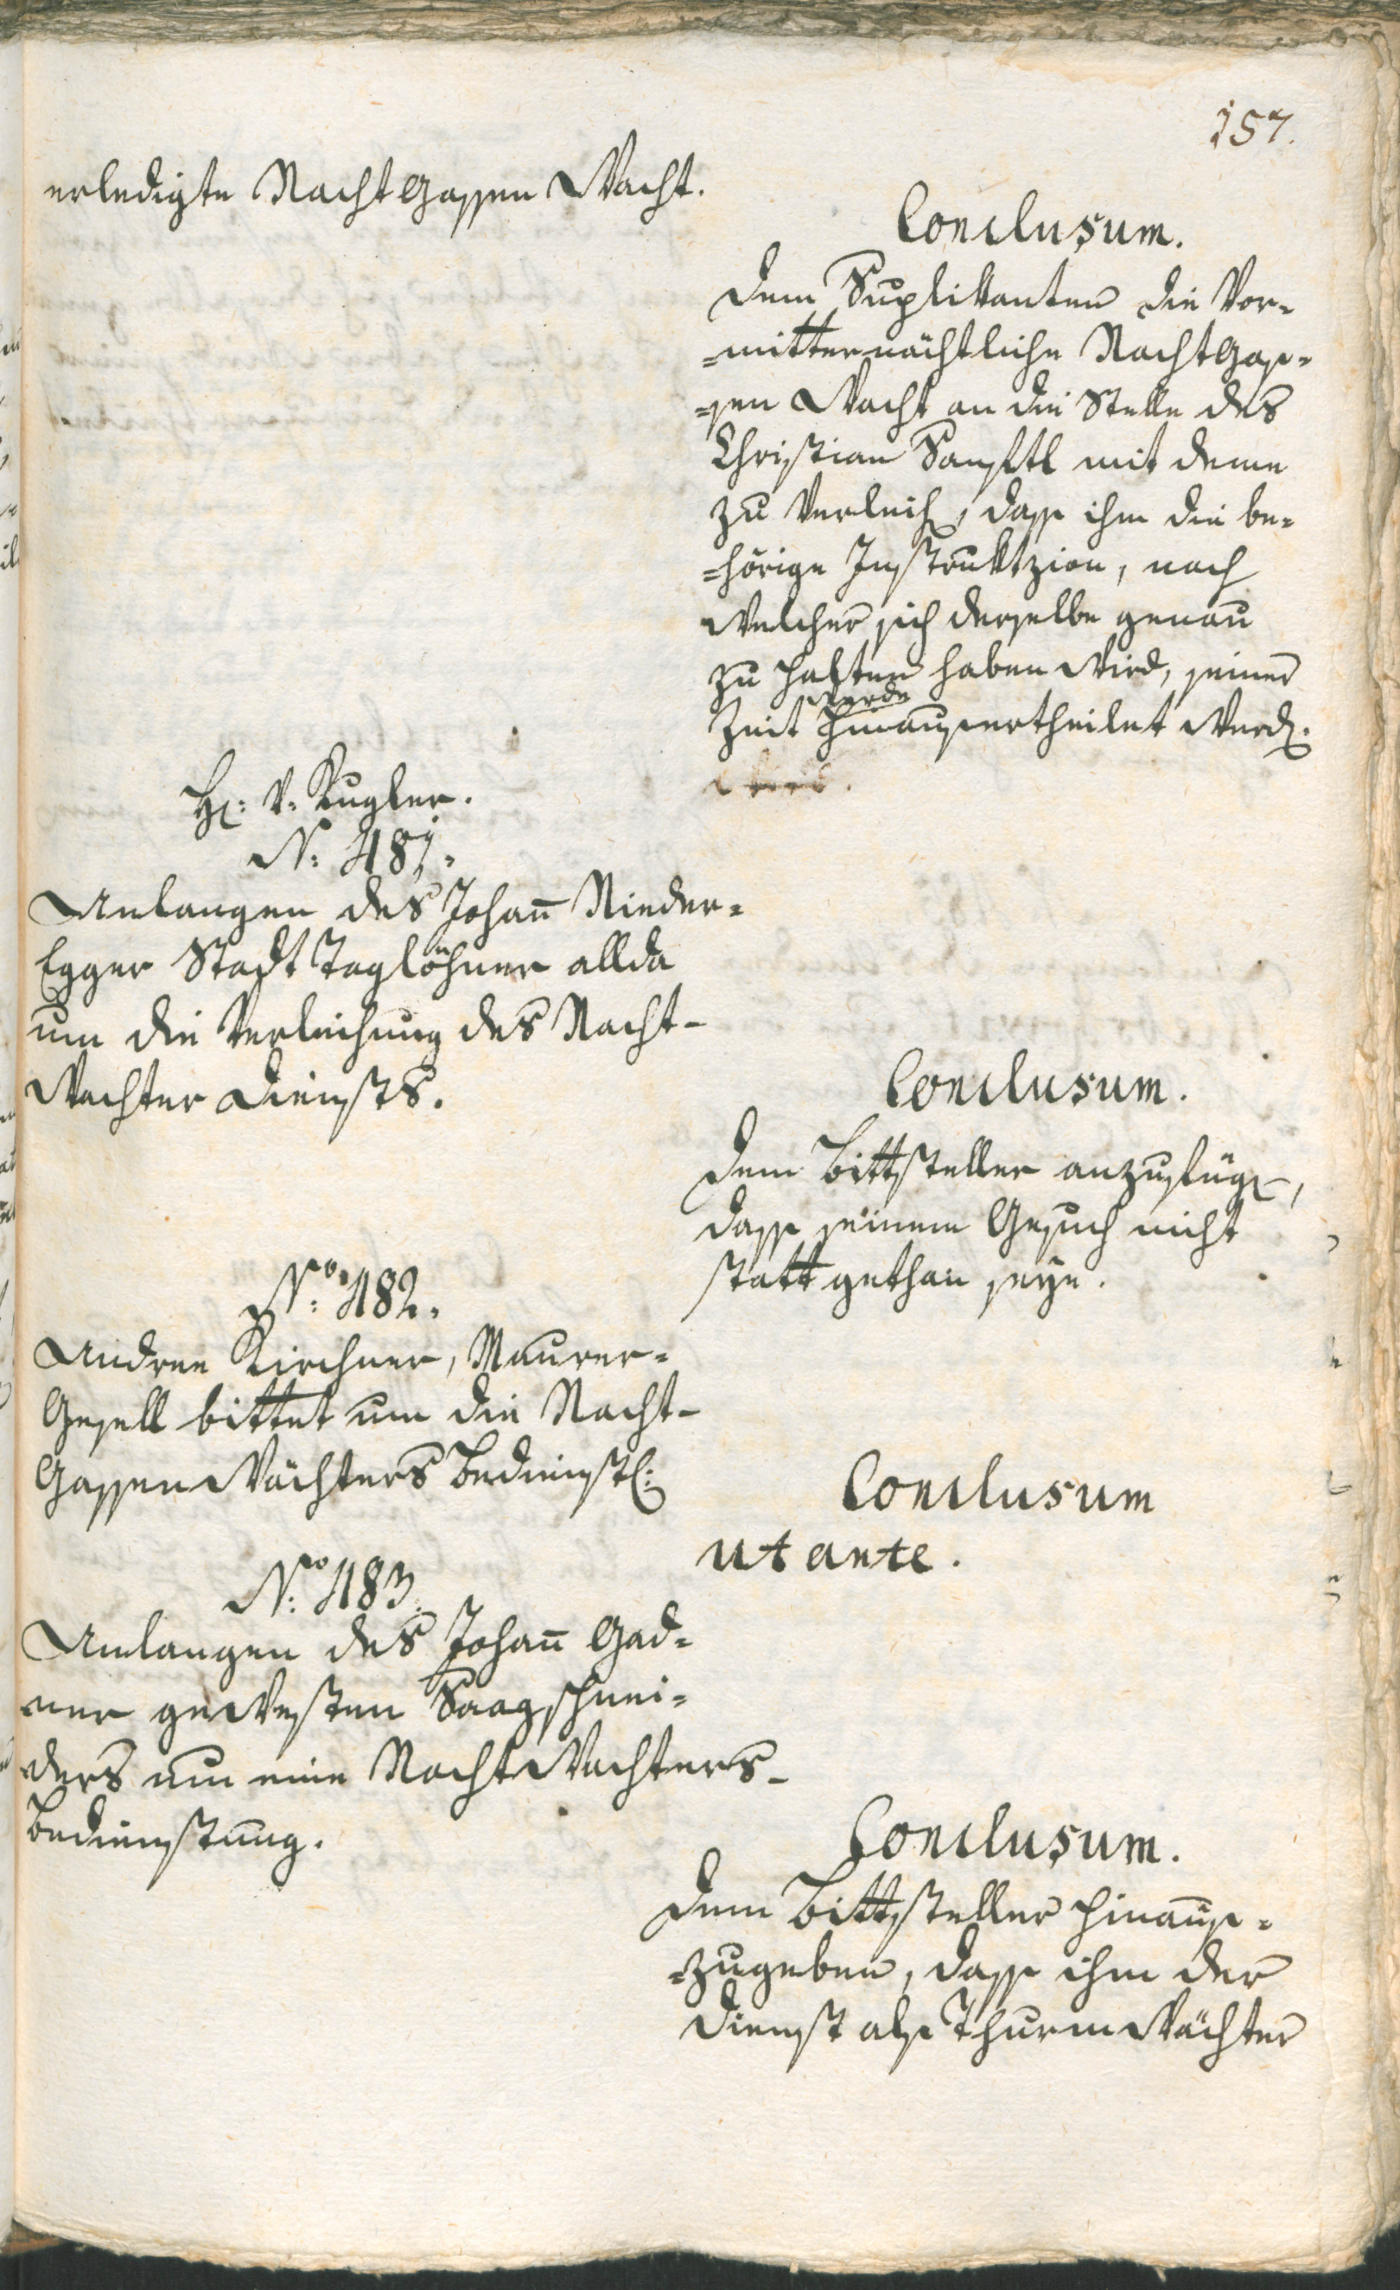 157.
erledigte Nacht Gassen Wacht.
Conclusum.
dem Suplikanten die Vor-
-mitternächtliche Nacht Gas-
-sen Wacht an die Stelle des
Christian Sanftl mit deme
zu verleih, dass ihm die be-
-hörige Instruktzion, nach
welcher sich derselbe genau
zu halten haben wird, seiner
werde
Zeit hinausertheilet werd.
H: v: Kugler.
N: 481.
Anlangen des Johañ Nieder-
Egger Stadt Taglöhner allda
um die Verleihung des Nacht-
Wachter Diensts.
Conclusum.
dem Bittsteller anzufüg,
dass seinem Gesuch nicht
statt gethan seye.
No: 482.
Andree Kirchner, Maurer-
Gesell bittet um die Nacht-
Gassen Wächters Bedienst:
Conclusum
ut ante.
No: 483.
Anlangen des Johañ Gad-
ner gewesten Saagschnei-
ders um eine Nacht Wachters-
Bedienstung.
Conclusum.
dem Bittsteller hinaus-
-zugeben, dass ihm der
Dienst als Thurm Wächter